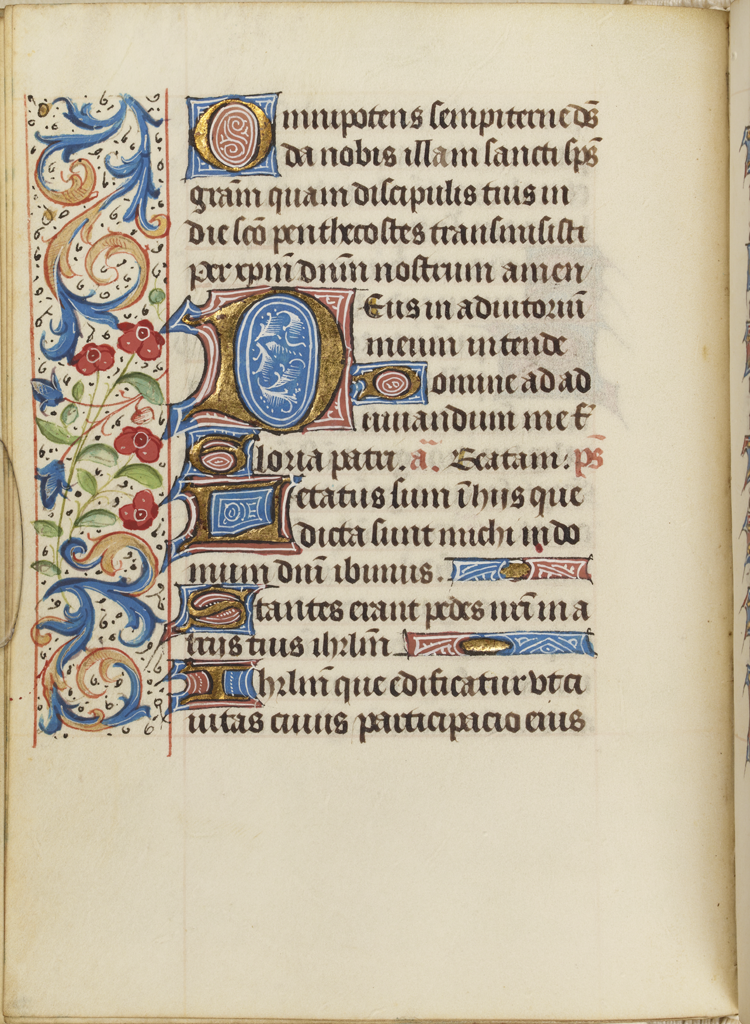 Omnipotens sempiterne ds̄
da nobis illam sancti sp̄s
grām quam discipulis tuis in
die scō penthecostes transmisisti
per xpm̄ dnm̄ nostrum amen
DEus in adiutoriū
meum intende
Domine ad ad
iuuandum me f
Gloria patri. a͞. Beatam: ps̄
Letatus sum ī hiis que
dicta sunt michi in do
mum dnī ibimus.
Stantes erant pedes nrī in a
triis tuis ihrlm̄
Ihrlm̄ que edificatur vt ci
uitas cuius participacio eius